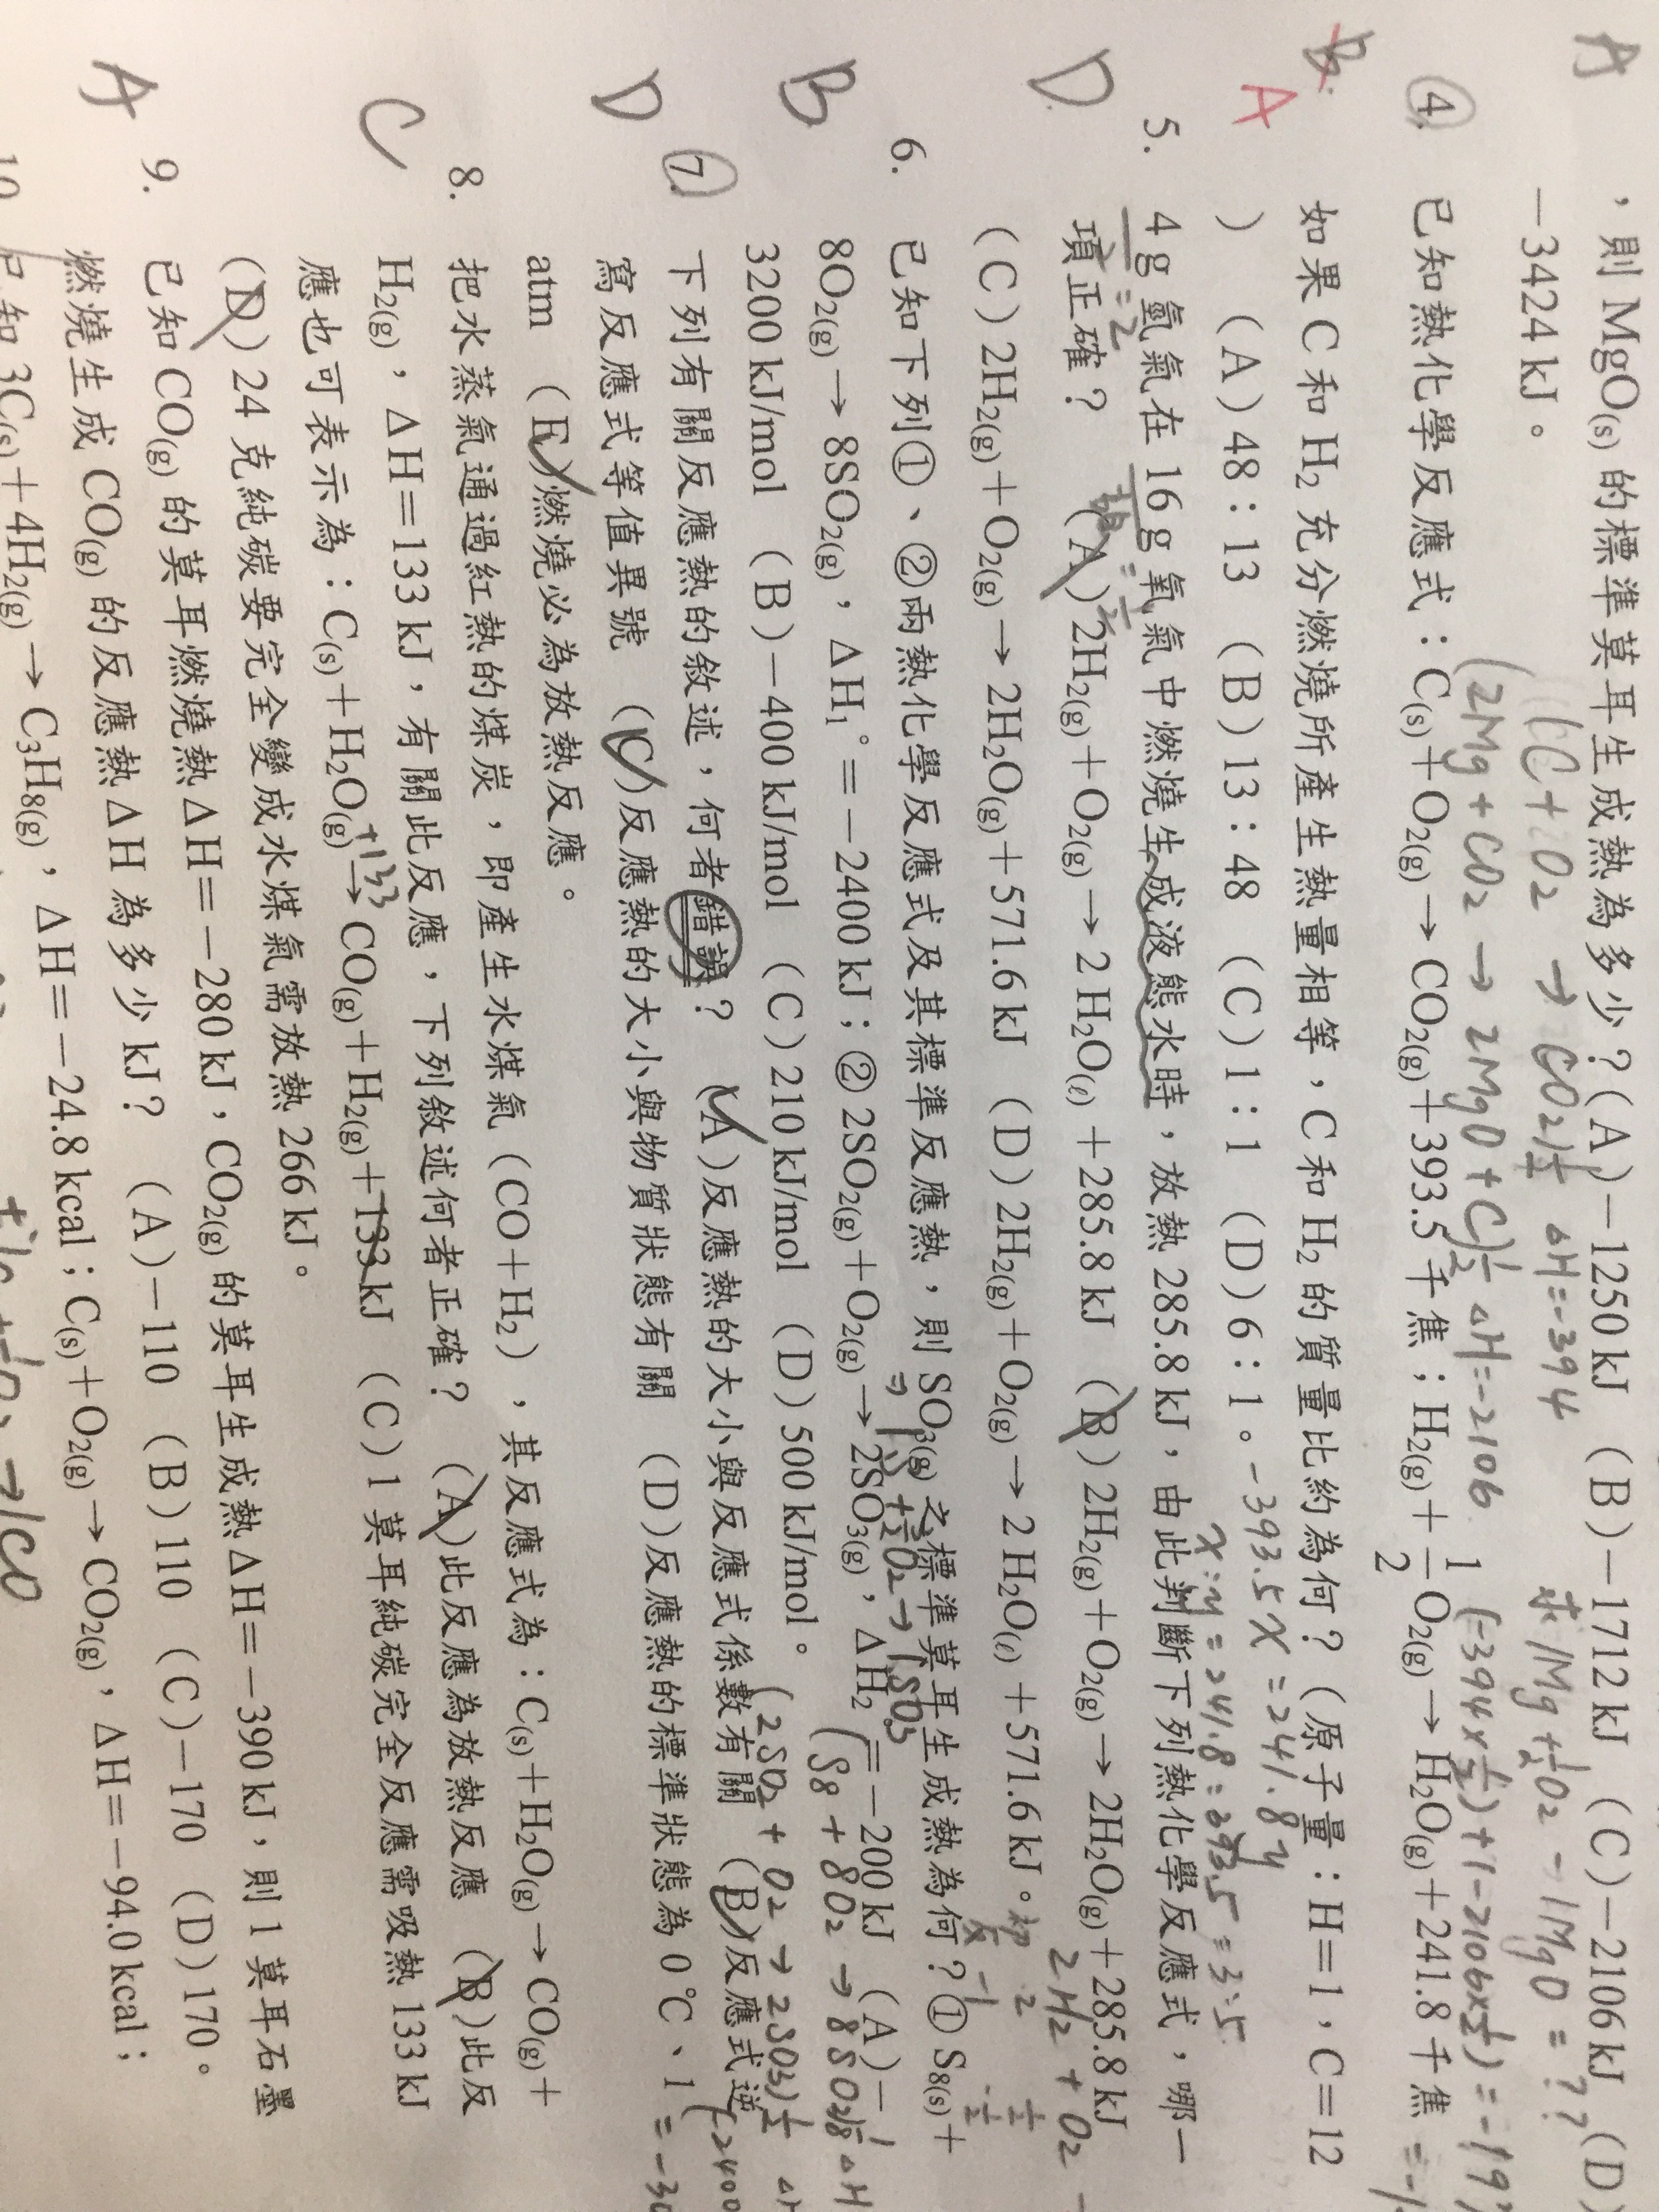 A
，則 MgO(s) 的標準莫耳生成熱為多少？(A)－1250 kJ (B)－1712 kJ (C)－2106 kJ (D)
－3424 kJ。
(C + O2 → CO2) 1/2 ΔH = -394 求 1Mg + 1/2 O2 → 1MgO = ??
(2Mg + CO2 → 2MgO + C) 1/2 ΔH = -2106 (-394 × 1/2) + (-2106 × 1/2) =
④ 已知熱化學反應式：C(s)＋O2(g)→CO2(g)＋393.5 千焦；H2(g)＋1/2 O2(g)→H2O(g)＋241.8 千焦
B A
如果 C 和 H2 充分燃燒所產生熱量相等，C 和 H2 的質量比約為何？（原子量：H＝1，C＝12
） (A) 48：13 (B) 13：48 (C) 1：1 (D) 6：1。
-393.5X = 241.8y
x:y = 241.8 : 393.5 = 3:5
D
5. 4 g 氫氣在 16 g 氧氣中燃燒生成液態水時，放熱 285.8 kJ，由此判斷下列熱化學反應式，哪一
項正確？ (A) 2H2(g)＋O2(g)→2 H2O(ℓ)＋285.8 kJ (B) 2H2(g)＋O2(g)→2H2O(g)＋285.8 kJ
(C) 2H2(g)＋O2(g)→2H2O(g)＋571.6 kJ (D) 2H2(g)＋O2(g)→2 H2O(ℓ)＋571.6 kJ。
2H2 + O2
B
6. 已知下列①、②兩熱化學反應式及其標準反應熱，則 SO3(g) 之標準莫耳生成熱為何？① S8(s)＋
8O2(g)→8SO2(g)，ΔH1°＝－2400 kJ；② 2SO2(g)＋O2(g)→2SO3(g)，ΔH2＝－200 kJ (A)－
3200 kJ/mol (B)－400 kJ/mol (C) 210 kJ/mol (D) 500 kJ/mol。
(S8 + 8O2 → 8SO2) 1/8 ΔH
(2SO2 + O2 → 2SO3) 1/2
D
⑦ 下列有關反應熱的敘述，何者錯誤？ (A)反應熱的大小與反應式係數有關 (B)反應式逆
寫反應式等值異號 (C)反應熱的大小與物質狀態有關 (D)反應熱的標準狀態為 0℃、1
atm (E)燃燒必為放熱反應。
C
8. 把水蒸氣通過紅熱的煤炭，即產生水煤氣（CO＋H2），其反應式為：C(s)＋H2O(g)→CO(g)＋
H2(g)，ΔH＝133 kJ，有關此反應，下列敘述何者正確？ (A)此反應為放熱反應 (B)此反
應也可表示為：C(s)＋H2O(g)→CO(g)＋H2(g)＋133 kJ (C) 1 莫耳純碳完全反應需吸熱 133 kJ
+133
(D) 24 克純碳要完全變成水煤氣需放熱 266 kJ。
A
9. 已知 CO(g) 的莫耳燃燒熱 ΔH＝－280 kJ，CO2(g) 的莫耳生成熱 ΔH＝－390 kJ，則 1 莫耳石墨
燃燒生成 CO(g) 的反應熱 ΔH 為多少 kJ？ (A)－110 (B) 110 (C)－170 (D) 170。
10 已知 3C(s)＋4H2(g)→C3H8(g)，ΔH＝－24.8 kcal；C(s)＋O2(g)→CO2(g)，ΔH＝－94.0 kcal；